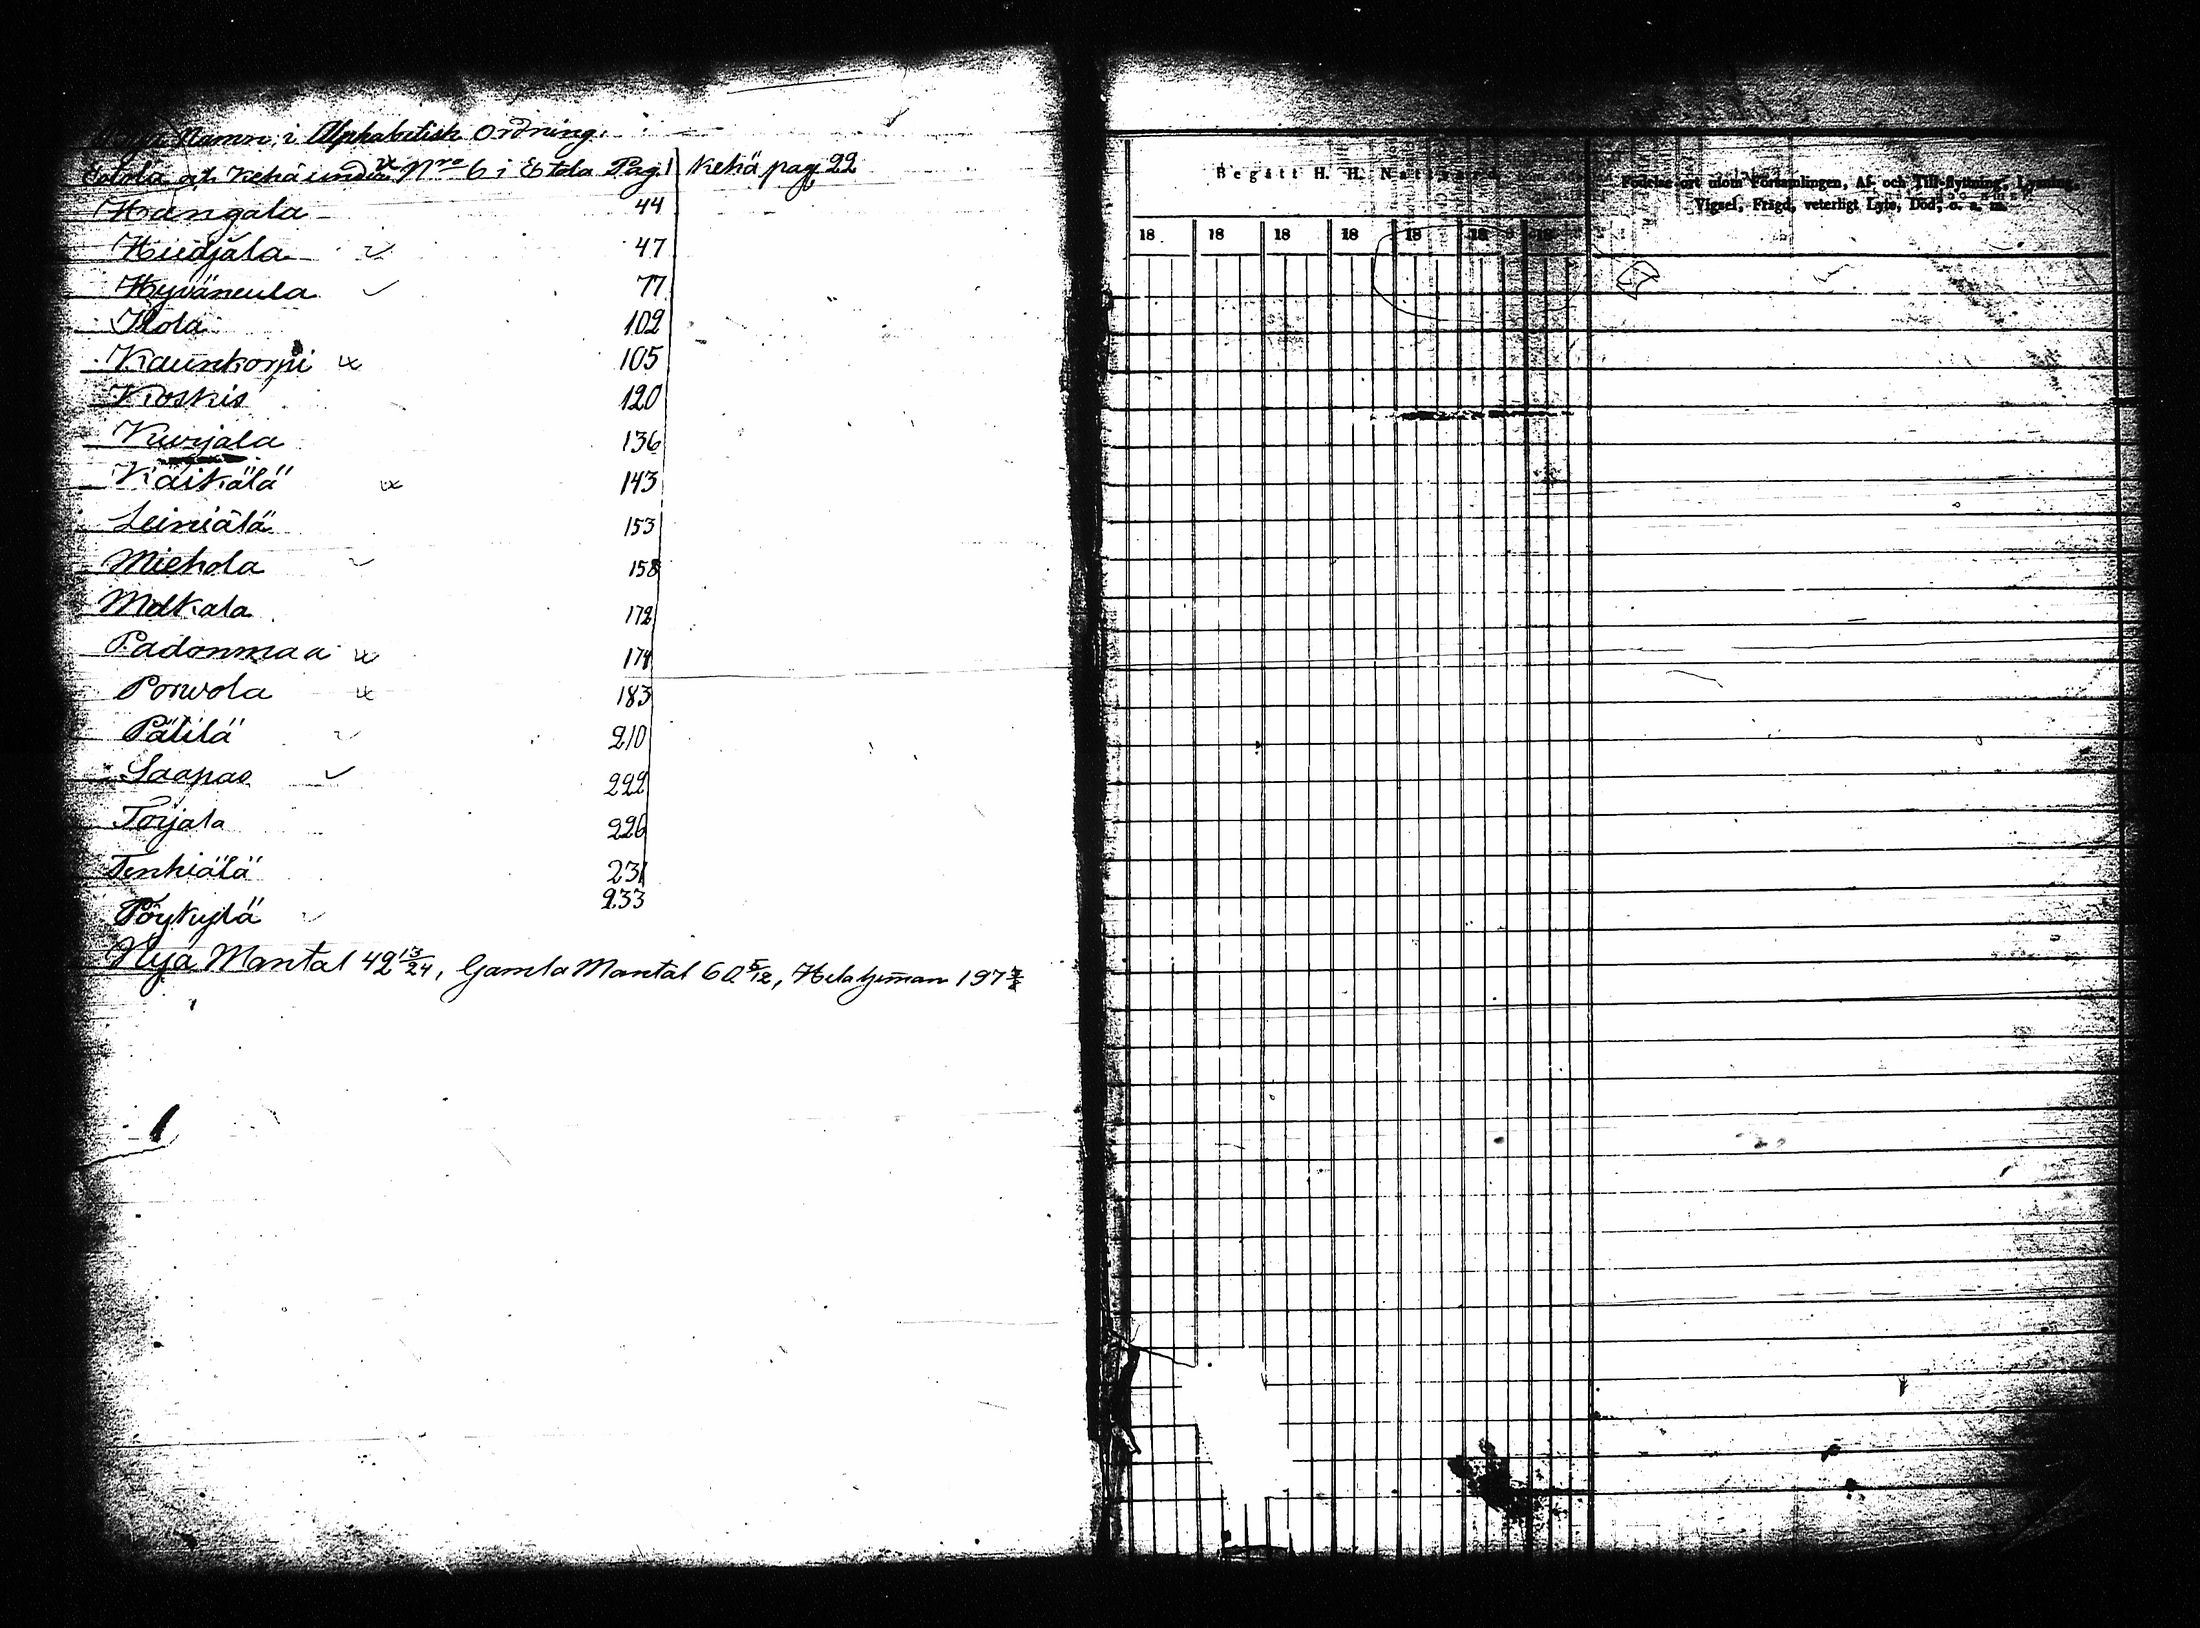 Namn i Alphabetisk Ordning.
Etola och Kehä under Nro 6 i Etola Pag. 1 Kehä pag 22
Hrangala 44
Hudjala 47
Hyväneula 77
Ilola 102
Kaunkorpi 105
Koskis 120
Kurjala 136
Käikälä 143
Leiniälä 153
Miehola 158
Molkala 172
Padonmaa 174
Porvola 183
Pätilä 210
Saapas 222
Torjala 226
Tenhiälä 231
Pöykylä 233
Nya Mantal 42 13/24, Gamla Mantal 60 5/12, Helahemman 197
Begått H. H. Nattvard
Födelse-ort utom Församlingen, Af- och Till-flyttning, Lysning,
Vigsel, Frägd, veterligt Lyte, Död, o. s. m.
18 18 18 18 18 18 18